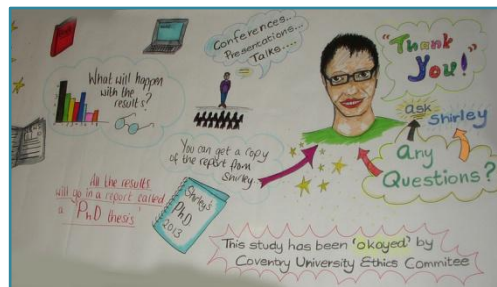 What will happen
with the
results?
Conferences..
Presentations...
Talks....
"Thank
You!"
ask
Shirley
Any
Questions?
You can get a copy
of the report from
Shirley
All the results
will go in a report called
a "PhD thesis"
Shirley's
Ph.D.
2013
This study has been 'okayed' by
Coventry University Ethics Commitee